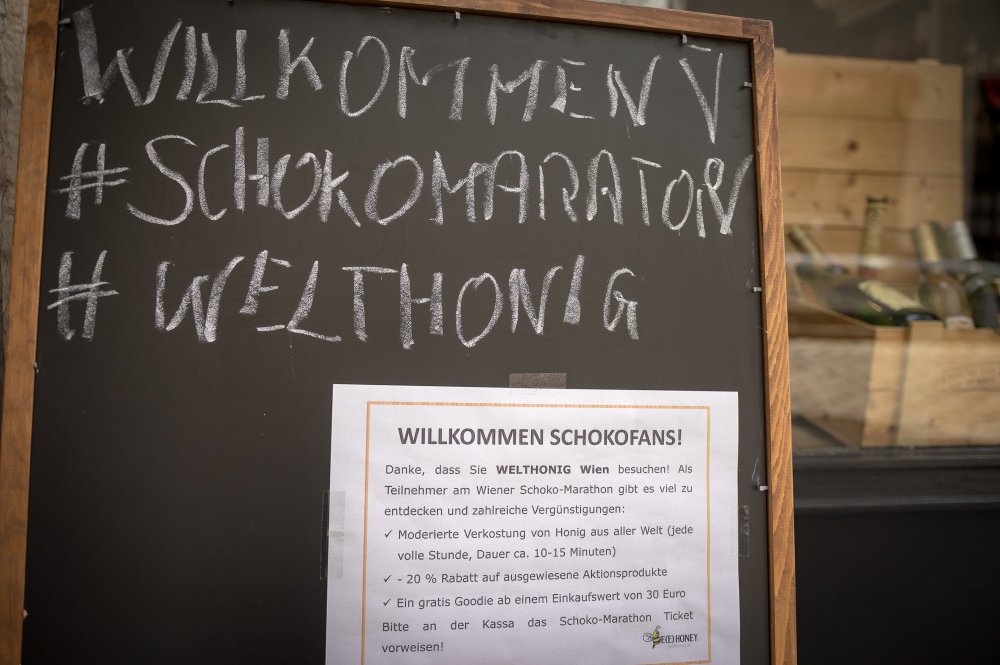 WILLKOMMEN
#SCHOKOMARATON
#WELTHONIG
WILLKOMMEN SCHOKOFANS!
Danke, dass Sie WELTHONIG Wien besuchen! Als
Teilnehmer am Wiener Schoko-Marathon gibt es viel zu
entdecken und zahlreiche Vergünstigungen:
✓ Moderierte Verkostung von Honig aus aller Welt (jede
volle Stunde, Dauer ca. 10-15 Minuten)
✓ - 20 % Rabatt auf ausgewiesene Aktionsprodukte
✓ Ein gratis Goodie ab einem Einkaufswert von 30 Euro
Bitte an der Kassa das Schoko-Marathon Ticket
vorweisen!
BE(E)HONEY